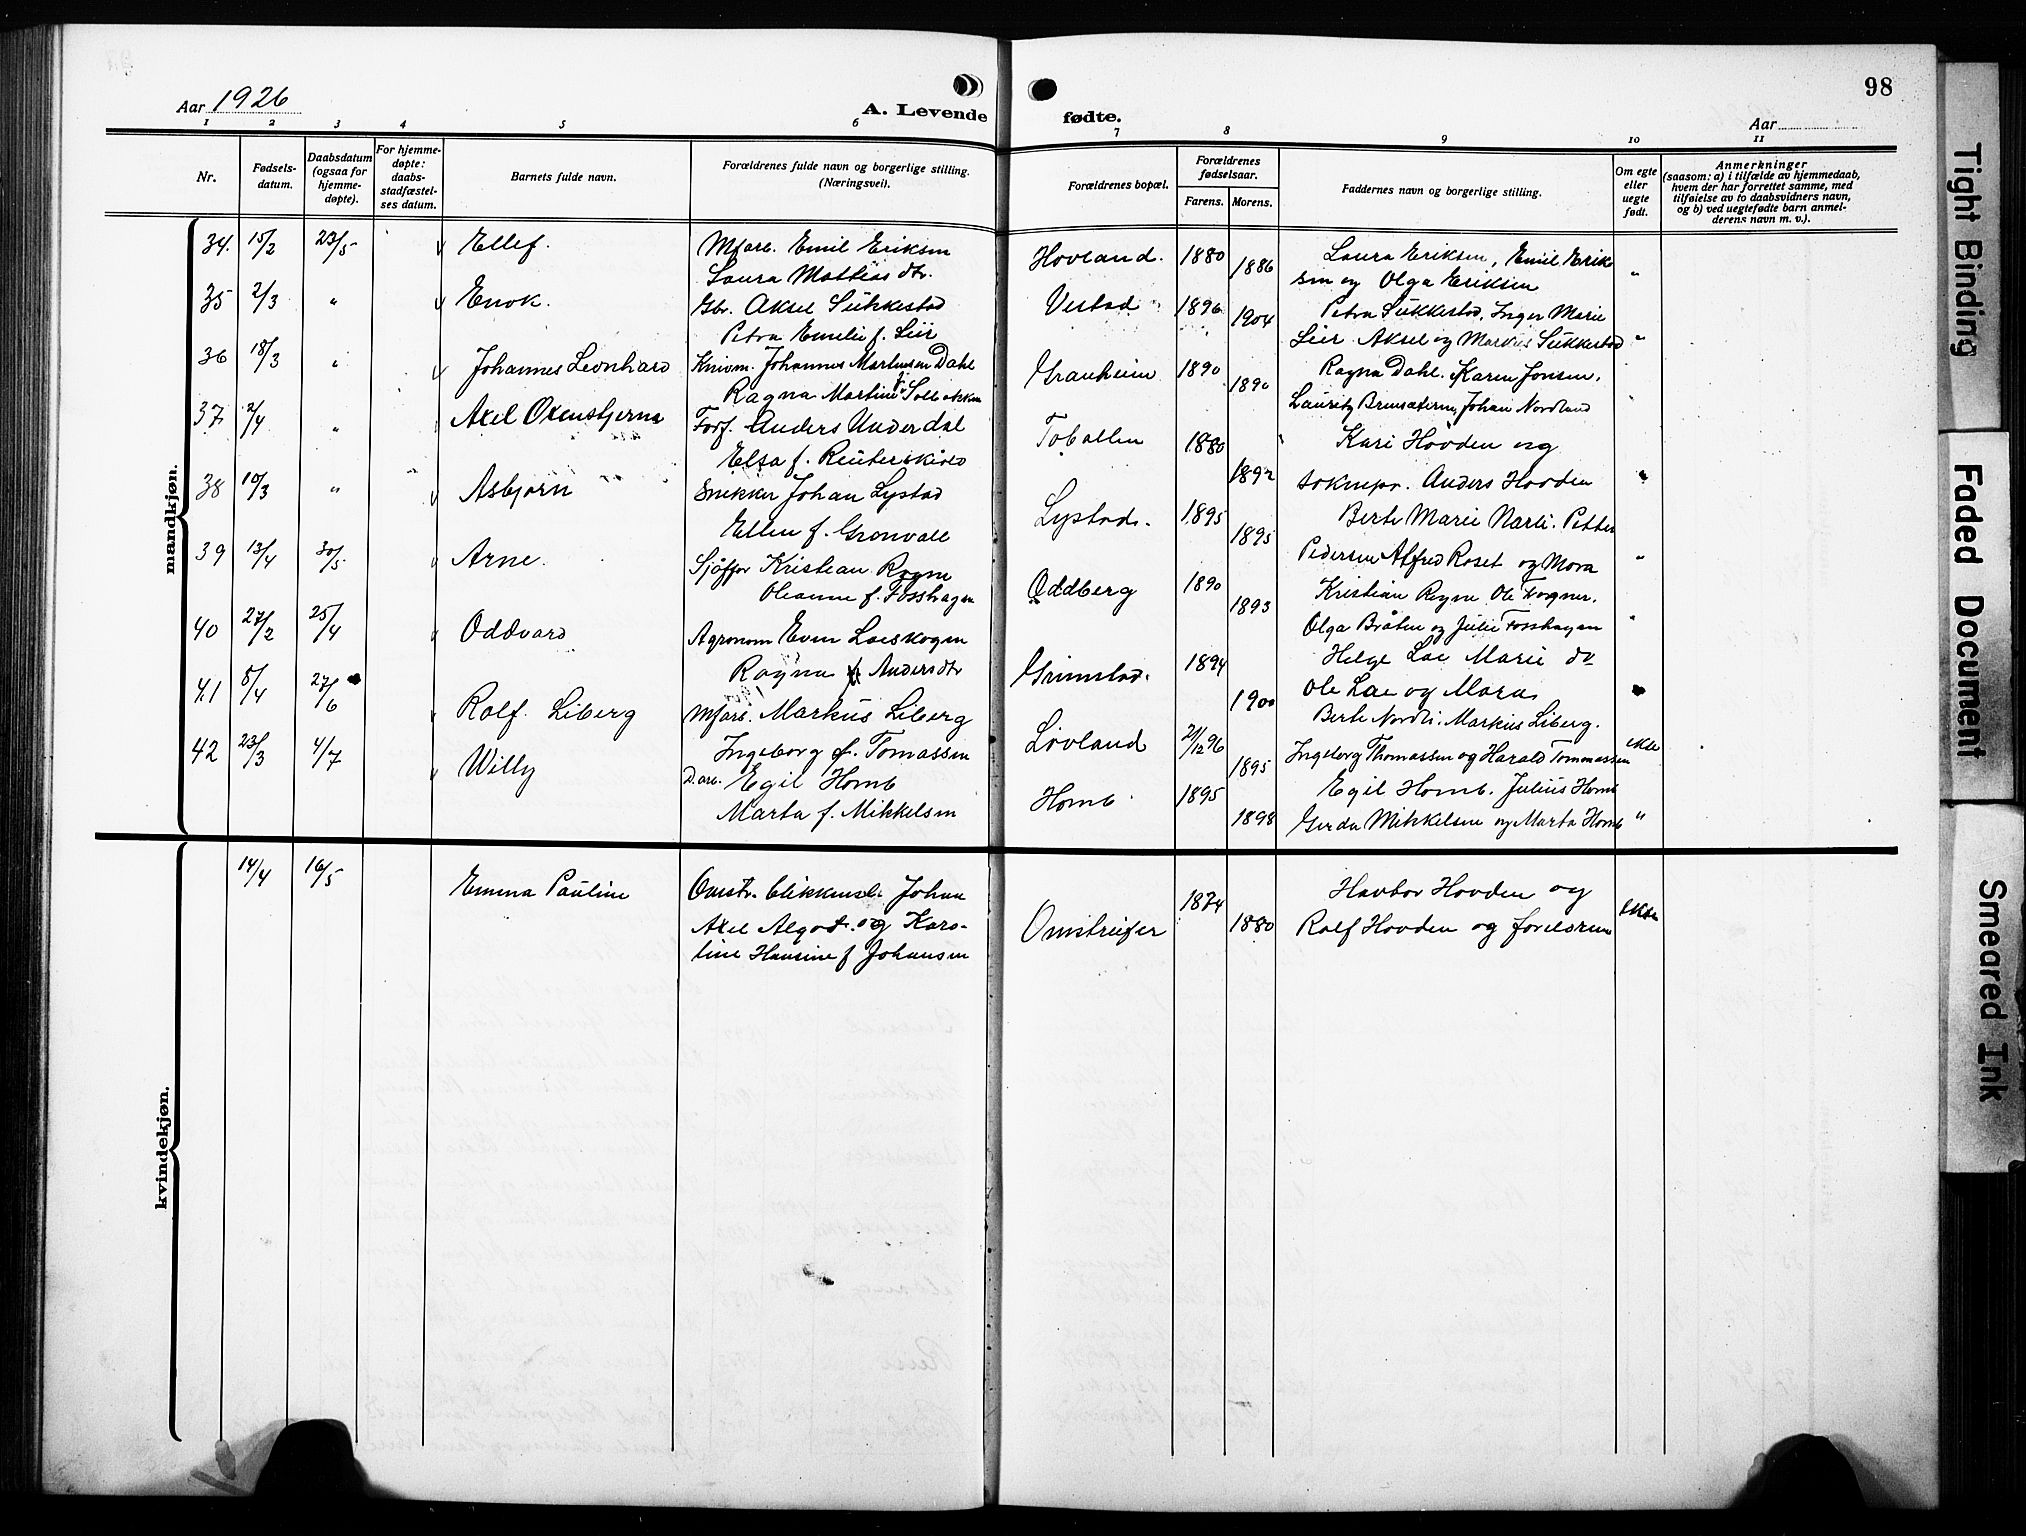 98
Aar 1926
A. Levende fødte.
Aar
1 2 3 4 5 6 7 8 9 10 11
Nr.
Fødsels-
datum.
Daabsdatum
(ogsaa for
hjemme-
døpte).
For hjemme-
døpte:
daabs-
stadfæstel-
ses datum.
Barnets fulde navn.
Forældrenes fulde navn og borgerlige stilling.
(Næringsvei).
Forældrenes bopæl.
Forældrenes
fødselsaar.
Farens. Morens.
Faddernes navn og borgerlige stilling.
Om egte
eller
uegte
født.
Anmerkninger
(saasom: a) i tilfælde av hjemmedaab,
hvem der har forrettet samme, med
tilføielse av to daabsvidners navn,
og b) ved uegtefødte barn anmel-
derens navn m. v.).
mandkjøn.
34. 15/2 23/5 Ellef. Mfarb. Emil Eriksen Hovland. 1880 Laura Eriksen, Emil Erik
Laura Mattias dtr. 1886 sen og Olga Eriksen "
35 2/3 " Enok. Gbr. Aksel Sukkestad Vestad 1896 Petra Sukkestad, Inger Marie
Petra Emelie f. Leir 1904 Leir Aksel og Markus Sukkestad "
36 18/3 " Johannes Leonhard Johannes Martinsen Dahl Granheim 1890 Ragna Dahl. Karen Jonsen.
Ragna Martine 1890 Lauritz Johan Nordland
37 2/4 " Axel Oxenstjerna Forf. Anders Underdal 1880 Kari Hovden og
Elsa f. Reuterskiold 1892 soknepr. Anders Hovden "
38 10/3 " Asbjørn Snekker Johan Lystad Lystad. 1895 Berte Marie Narli. Petter
Ellen f. Gronvall 1895 Pedersen Alfred Roset og Mora "
39 13/4 30/5 Arne. Sjåffør Kristian Rogne Oddberg 1890 Kristian Rogne Ole Fogner.
Oleanne f. Fosshagen 1893 Olga Bråten og Julie Fosshagen "
40 27/2 25/4 Oddvard Agronom Even Laeskogen Grimstad. 1894 Helge Lae Marie do
Ragna f Andersdtr 1900 Ole Lae og Mora
41 5/4 27/6 Rolf Liberg Mfarb. Markus Liberg Lovland 21/12 96 Berte Nordli. Markus Liberg.
Ingeborg f. Tomassen 1895 Ingeborg Thomassen og Harald Tommassen ekte
42 23/3 4/7 Willy Darb. Egil Homb Homb 1895 Egil Homb. Julius Homb
Marta f. Mikkelsen 1898 Gerda Mikkelsen og Marta Homb "
kvindekjøn.
14/4 16/5 Emma Pauline Omstr. blikkensl. Johan 1874 Havbor Hovden og
Axel Algot og Karo- Omstreifer 1880 Rolf Hovden og foreldrene ekte
line Hansine f Johansen
Tight Binding
Faded Document
Smeared Ink